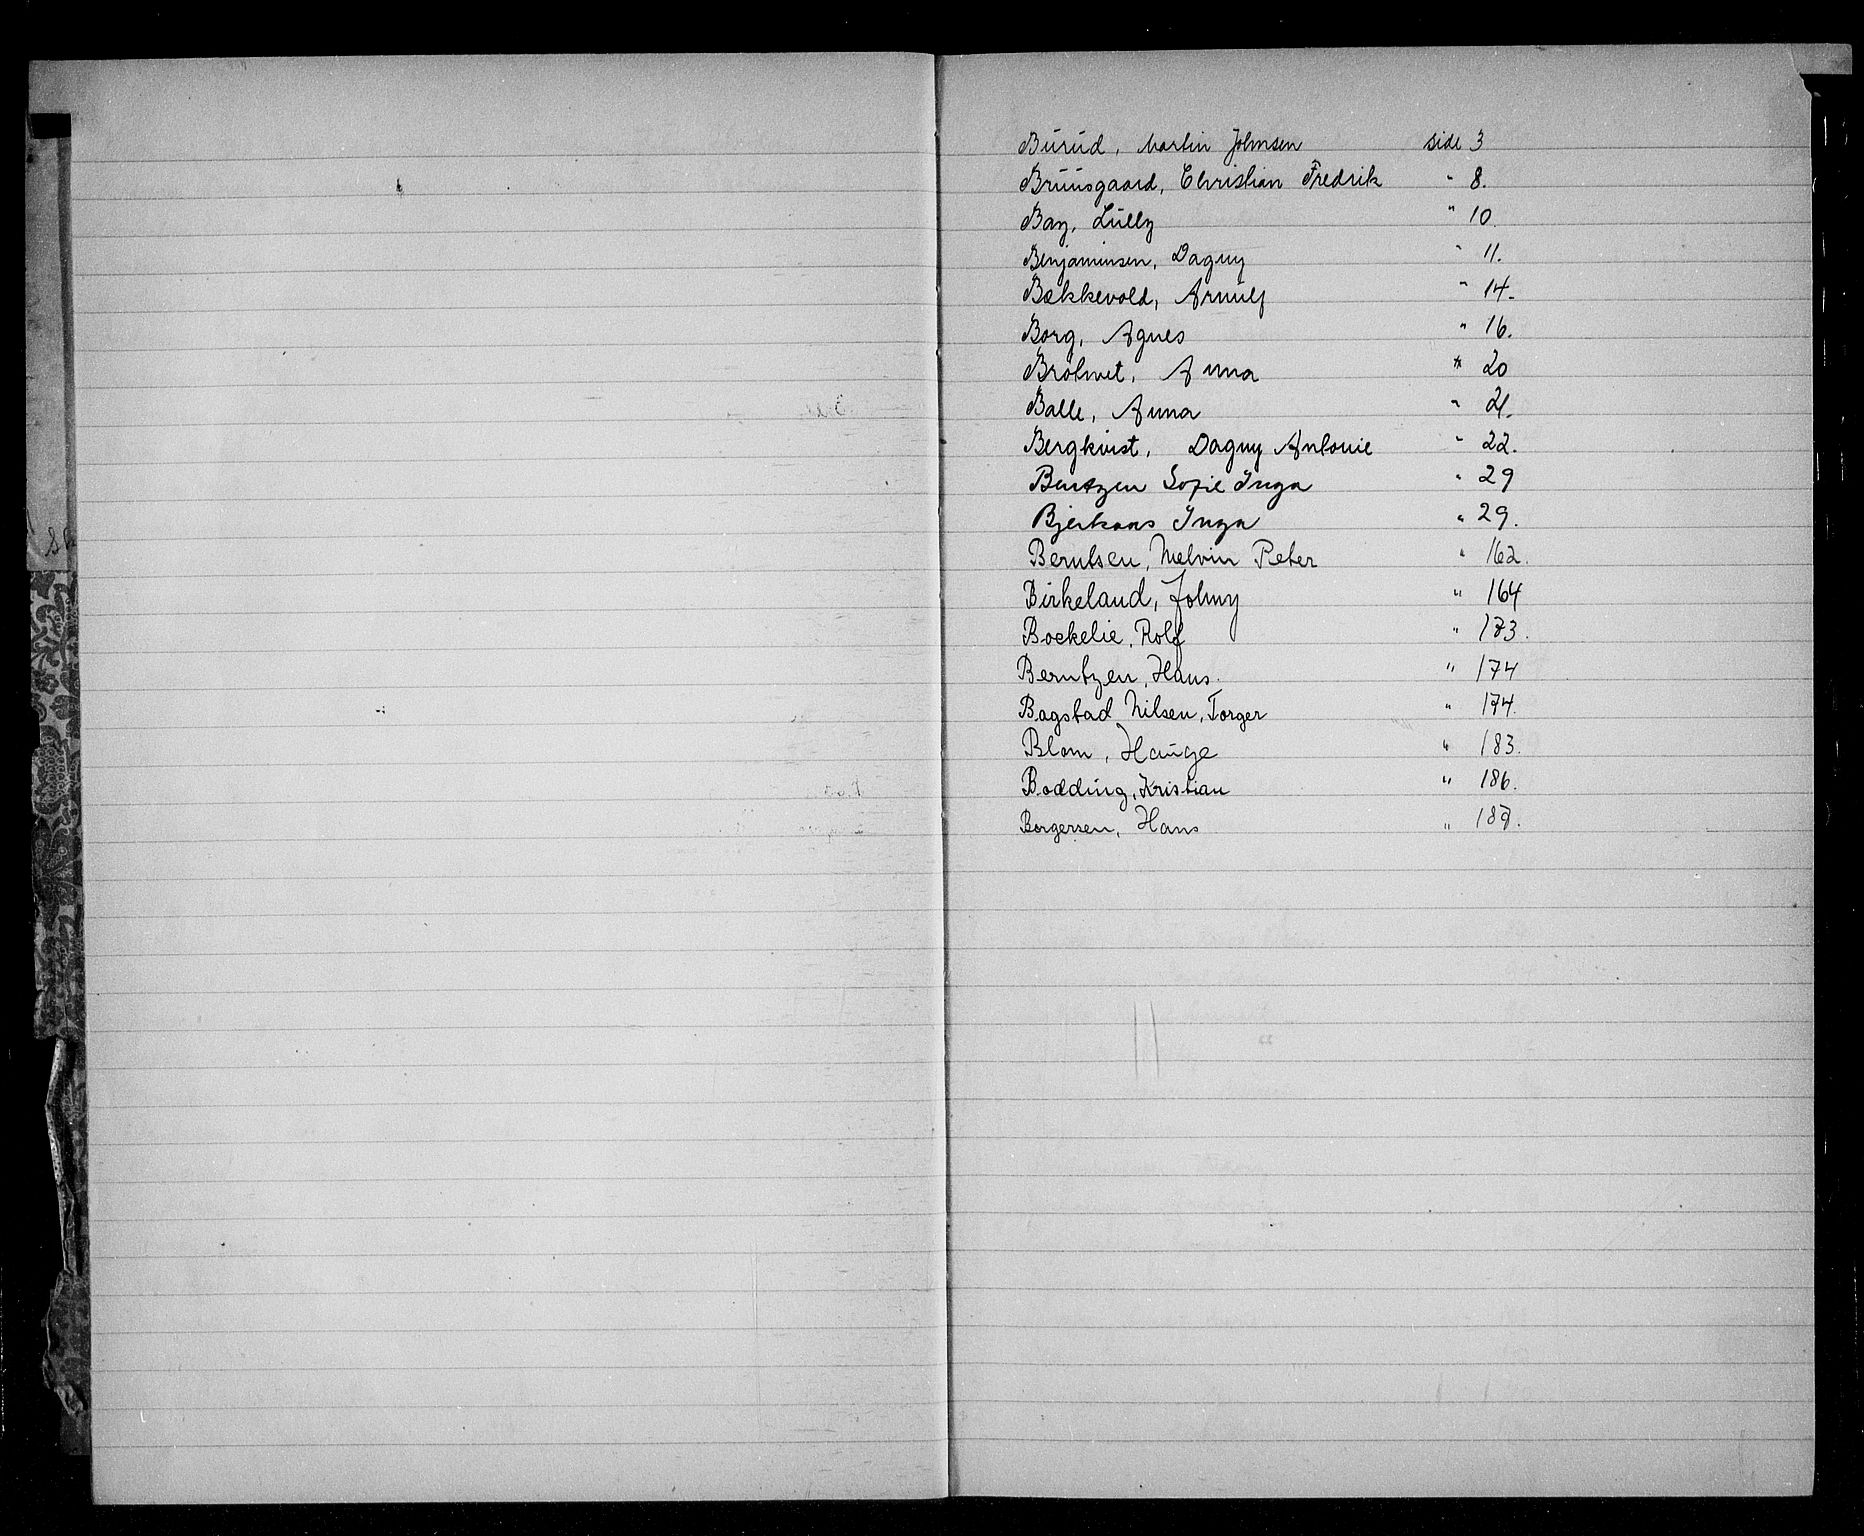 Burud, Martin Johnsen side 3
Bruusgaard, Christian Fredrik " 8.
Bay, Lully " 10.
Benjaminsen, Dagny " 11.
Bækkevold, Arnulf " 14.
Borg, Agnes " 16.
Brolwet, Anna " 20
Balle, Anna " 21.
Bergkvist, Dagny Antonie " 22.
Bentzen Sofie Inga " 29
Bjerkaas Inga " 29.
Berntsen, Melvin Peter " 162.
Birkeland, Johny " 164
Bockelie, Rolf " 173.
Berntzen, Hans. " 174
Bagstad Nilsen, Torger " 174.
Blom, Hauge " 183.
Bodding, Kristian " 186.
Borgersen, Hans " 187.